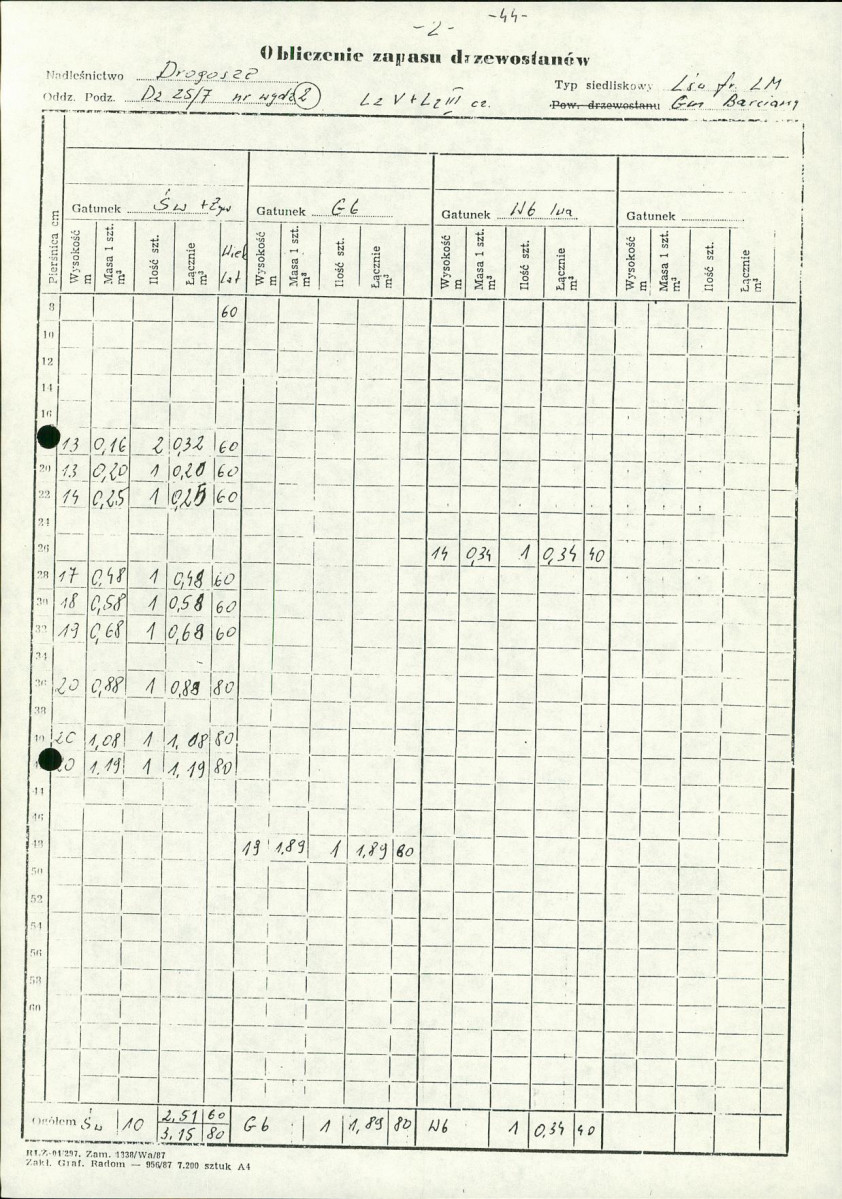 -2- -44-
Obliczenie zapasu drzewostanów
Nadleśnictwo Drogosze Typ siedliskowy Lśw fr. LM
Oddz. Podz. Dz 25/7 nr wydz 2 Lz V + Lz III cz. Pow. drzewostanu Gm Barciany
Gatunek Św Gatunek Gb Gatunek Wb Iwa Gatunek
Pierśnica cm Wysokość m Masa 1 szt. m³ Ilość szt. Łącznie m³ Wiek lat Wysokość m Masa 1 szt. m³ Ilość szt. Łącznie m³ Wysokość m Masa 1 szt. m³ Ilość szt. Łącznie m³ Wysokość m Masa 1 szt. m³ Ilość szt. Łącznie m³
8 60
10
12
14
16
13 0,16 2 0,32 60
20 13 0,20 1 0,20 60
22 14 0,25 1 0,25 60
24
26 14 0,34 1 0,34 40
28 17 0,48 1 0,48 60
30 18 0,58 1 0,58 60
32 19 0,68 1 0,68 60
34
36 20 0,88 1 0,88 80
38
40 20 1,08 1 1,08 80
20 1.19 1 1,19 80
44
46
48 19 1,89 1 1,89 80
50
52
54
56
58
60
Ogółem Św 10 2,51 60 Gb 1 1,89 80 Wb 1 0,34 40
3,15 80
RLZ-01/297, Zam. 1338/Wa/87
Zakł. Graf. Radom — 956/87 7.200 sztuk A4